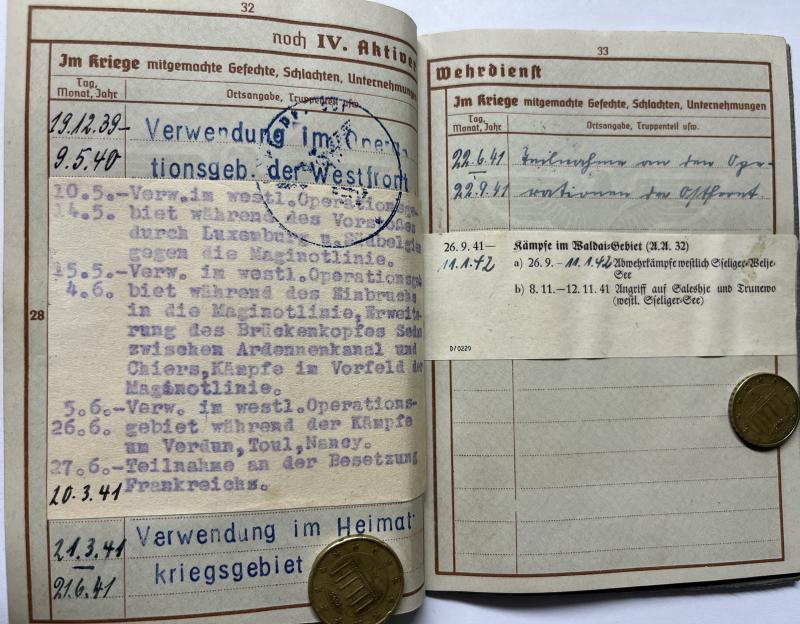 32
noch IV. Aktiver
Im Kriege mitgemachte Gefechte, Schlachten, Unternehmungen
Tag, Monat, Jahr
Ortsangabe, Truppenteil usw.
19.12.39-
9.5.40
Verwendung im Opera
tionsgeb. der Westfront
10.5.-Verw.im westl.Operationsge
14.5. biet während des Vorstoßes
durch Luxemburg u.Südbelgie
gegen die Maginotlinie.
15.5.-Verw. im westl.Operationsge
4.6. biet während des Einbruchs
in die Maginotlinie,Erweite
rung des Brückenkopfes Seda
zwischen Ardennenkanal und
Chiers,Kämpfe im Vorfeld de
Maginotlinie.
5.6.-Verw. im westl.Operations-
26.6. gebiet während der Kämpfe
um Verdun,Toul,Nancy.
27.6.-Teilnahme an der Besetzung
20.3.41 Frankreichs.
28
21.3.41
21.6.41
Verwendung im Heimat-
kriegsgebiet
33
Wehrdienst
Im Kriege mitgemachte Gefechte, Schlachten, Unternehmungen
Tag, Monat, Jahr
Ortsangabe, Truppenteil usw.
22.6.41 Teilnahme an den Ope-
22.9.41 rationen der Ostfront
26.9.41— Kämpfe im Waldai-Gebiet (A.A. 32)
11.1.42 a) 26.9. - 11.1.42 Abwehrkämpfe westlich Sseliger-Welje-
See
b) 8.11.—12.11.41 Angriff auf Saleshje und Trunewo
(westl. Sseliger-See)
D/0229